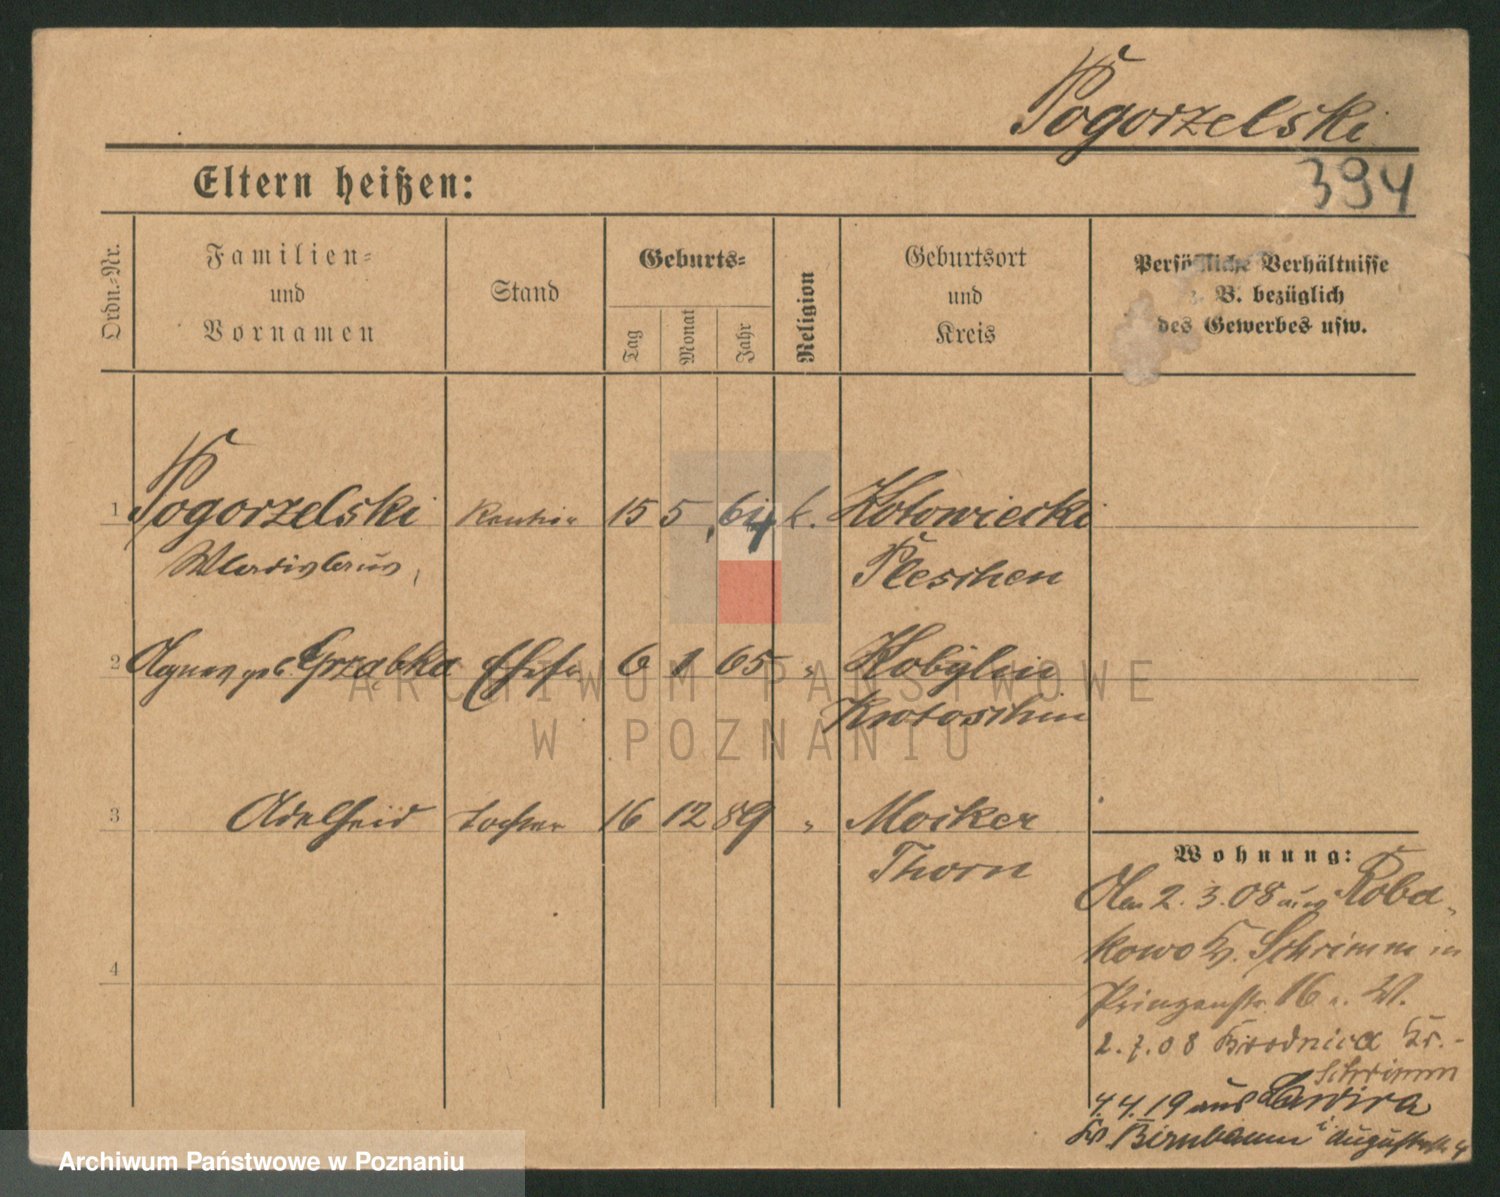 Pogorzelski
394
Eltern heißen:
Ordn.-Nr.
Familien- und Vornamen
Stand
Geburts-
Tag
Monat
Jahr
Religion
Geburtsort und Kreis
Persönliche Verhältnisse z. B. bezüglich des Gewerbes usw.
1 Pogorzelski 15 5 64 k. Kotowiecki
Wladislaus Pleschen
2 Agnes geb. Grzabka Ehefr 6 1 65 " Kobylin
Krotoschin
3 Adelheid Tochter 16 12 89 " Mocker
Thorn
4
Wohnung:
Am 2.3.08 aus Roba-
kowo Kr. Schrimm in
Prinzenstr. 16 W.
2.7.08 Brodnica Kr.-
Schrimm
4.4.19 aus
Kr Birnbaum i Augustastr 4
ARCHIWUM PAŃSTWOWE
W POZNANIU
Archiwum Państwowe w Poznaniu